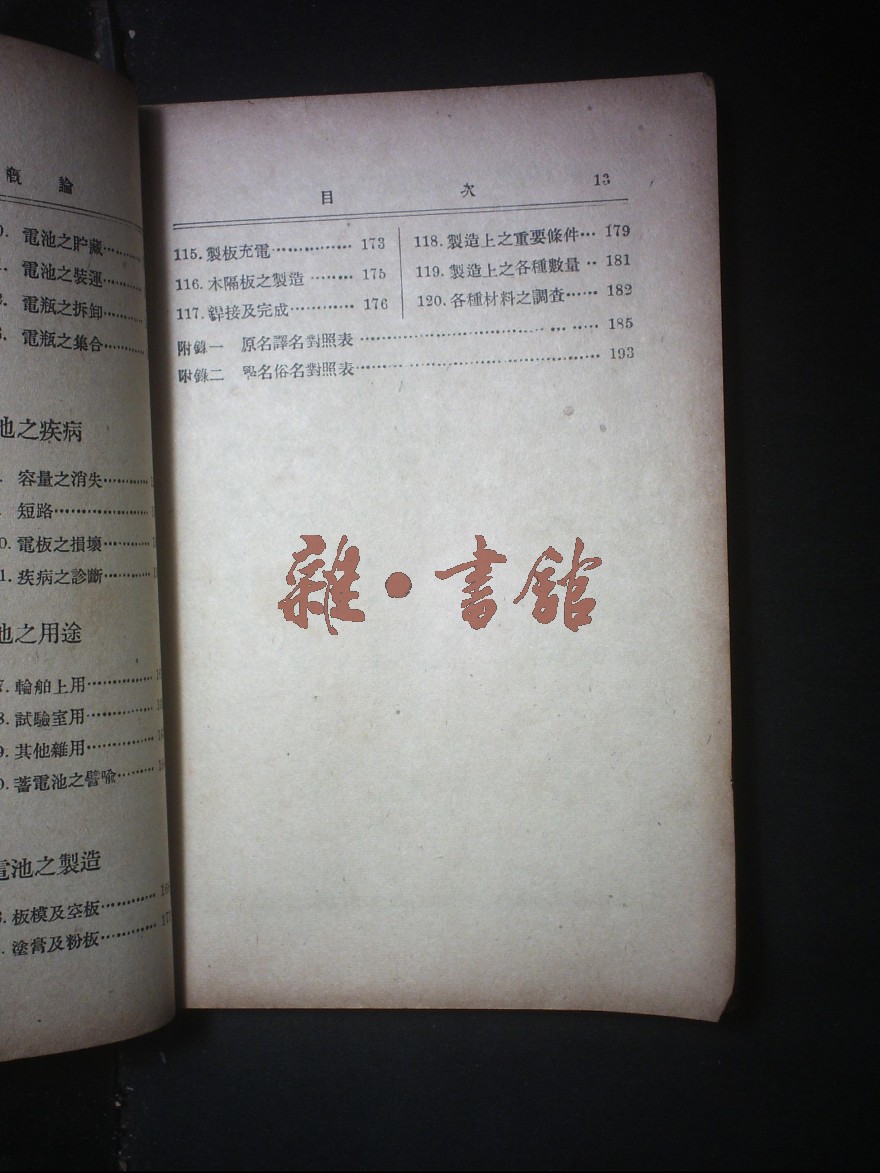 概 論
電池之貯藏………
電池之裝運………
電瓶之拆卸………
電瓶之集合………
池之疾病
容量之消失………
短路………
0. 電板之損壞………
1. 疾病之診斷………
池之用途
7. 輪舶上用………
8. 試驗室用………
9. 其他雜用………
0. 蓄電池之譬喻………
電池之製造
板模及空板………
塗膏及粉板………
目 次 13
115. 製板充電……………… 173
116. 木隔板之製造 ……… 175
117. 銲接及完成………… 176
118. 製造上之重要條件… 179
119. 製造上之各種數量 ‥ 181
120. 各種材料之調查…… 182
附錄一 原名譯名對照表 ………………………… 185
附錄二 學名俗名對照表………………………… 193
雜·書館